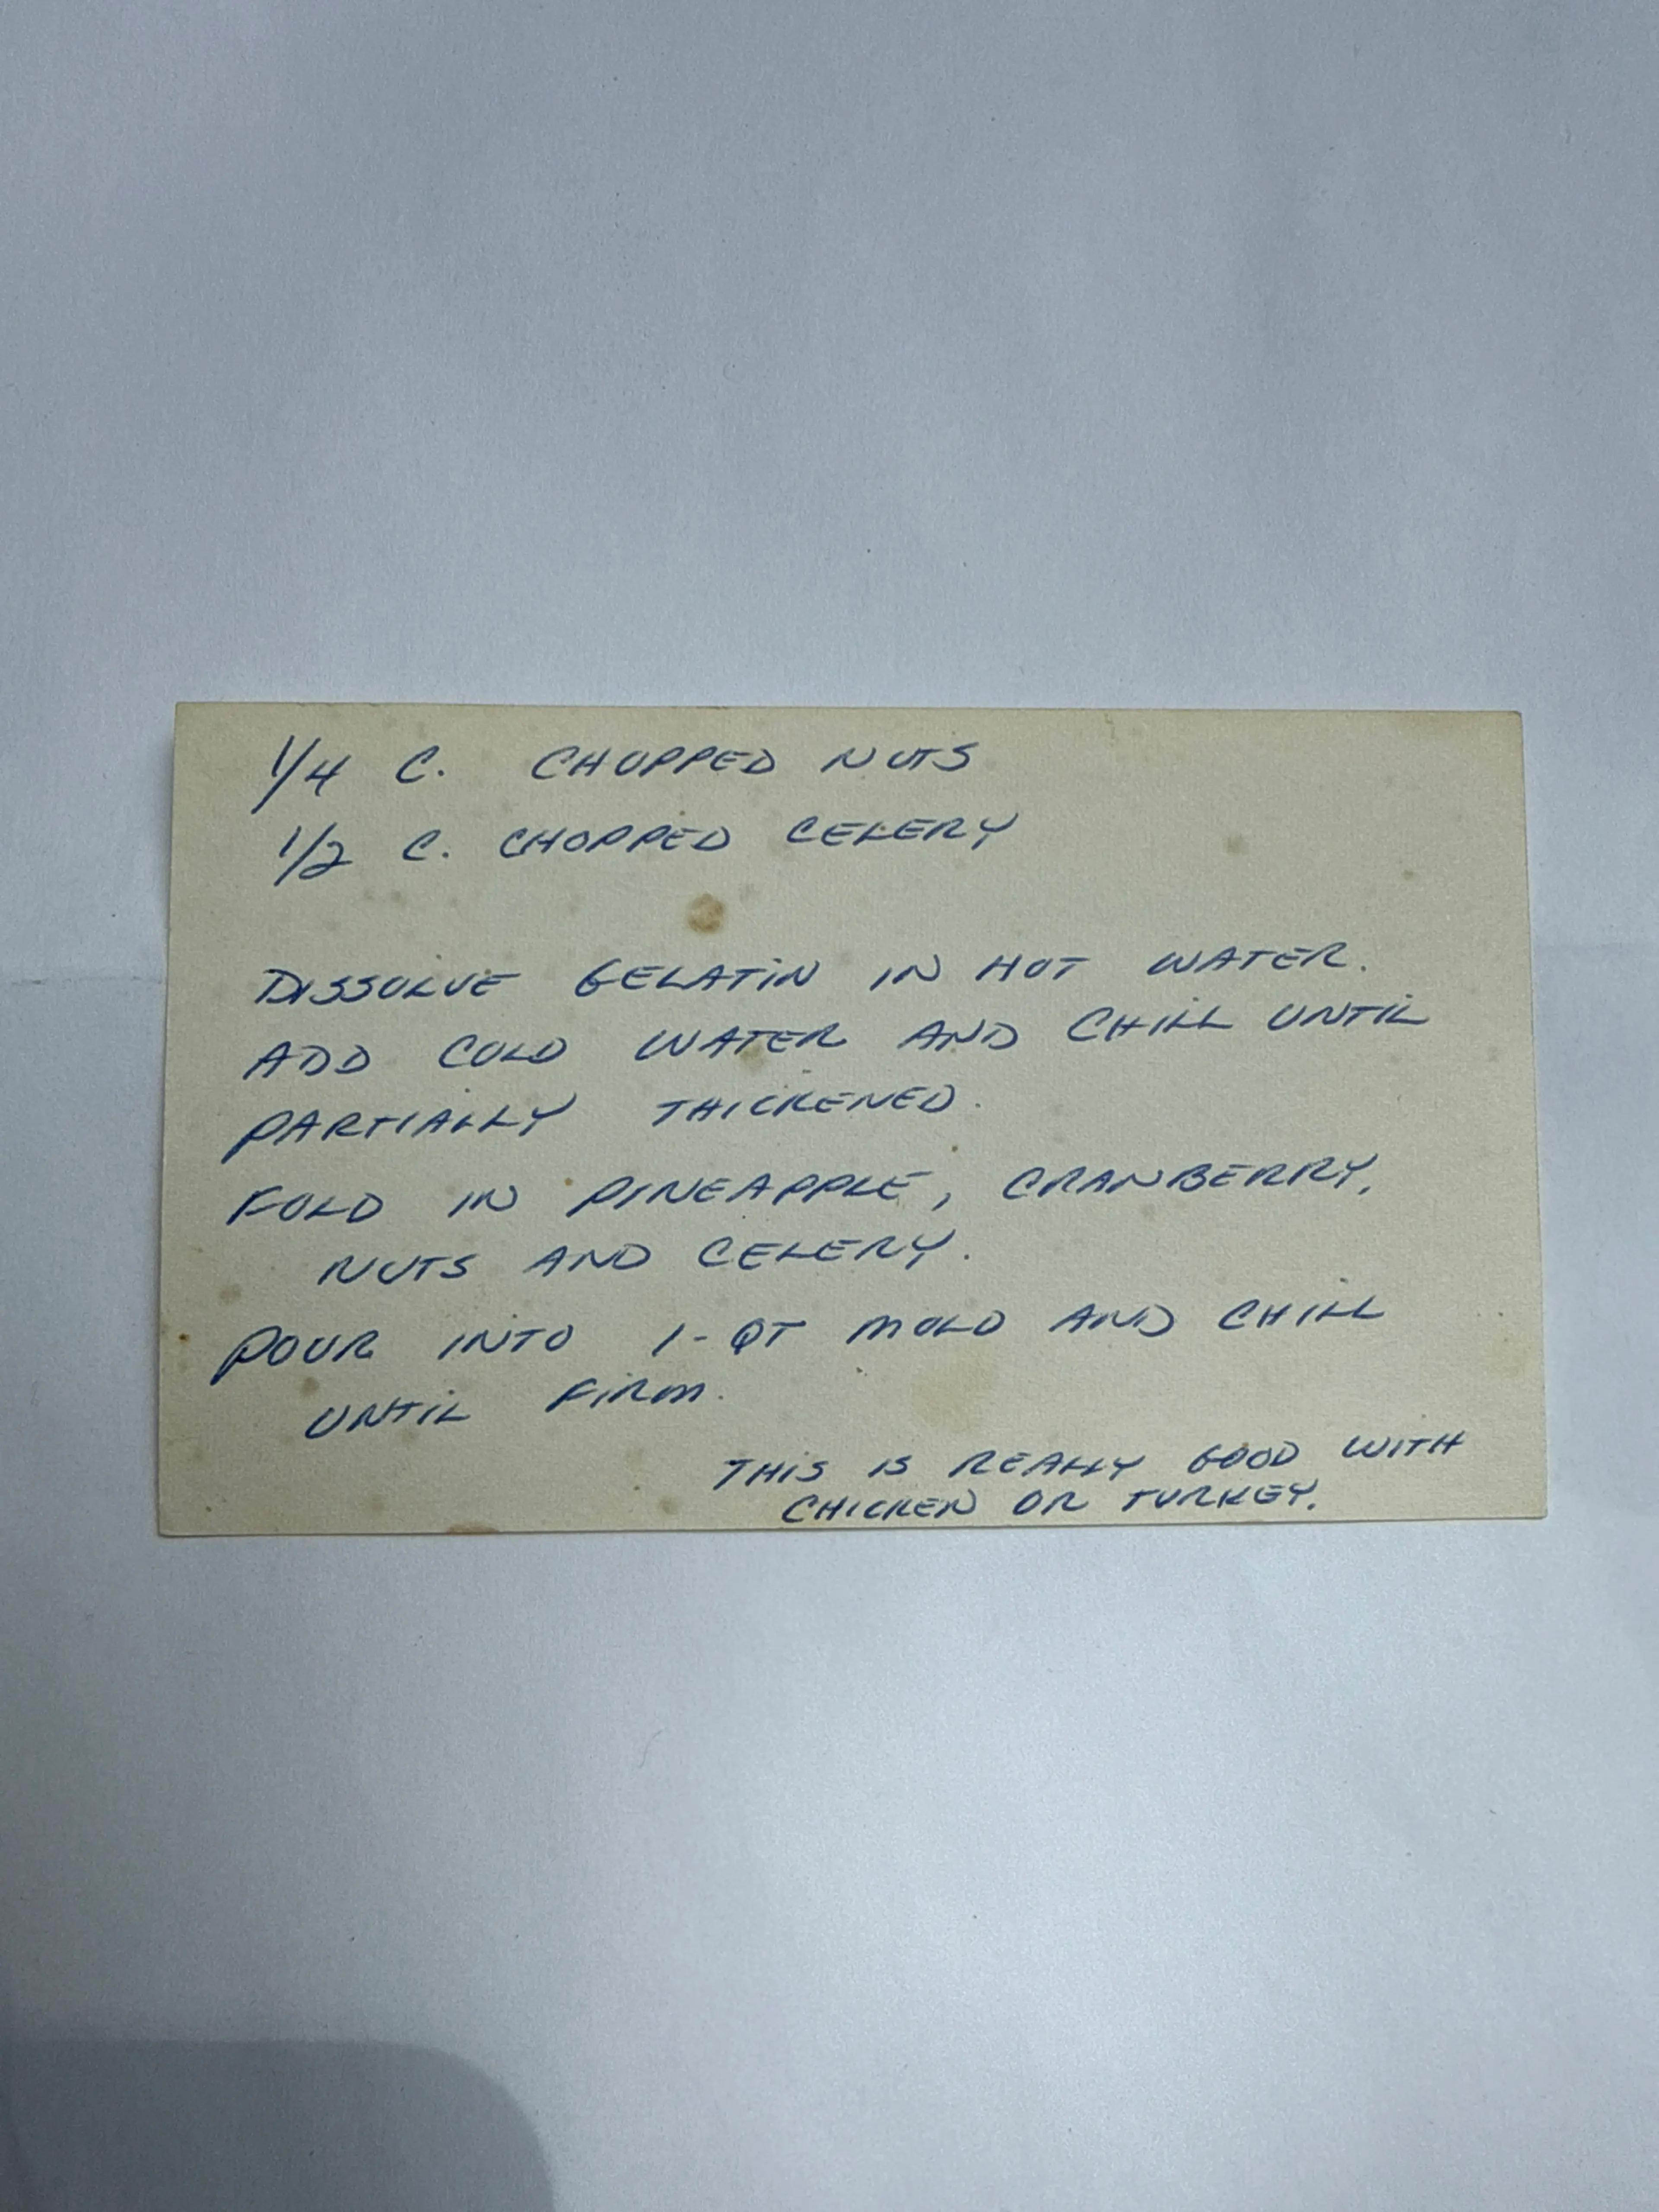 1/4 C. CHOPPED NUTS
1/2 C. CHOPPED CELERY
DISSOLVE GELATIN IN HOT WATER.
ADD COLD WATER AND CHILL UNTIL
PARTIALLY THICKENED.
FOLD IN PINEAPPLE, CRANBERRY,
NUTS AND CELERY.
POUR INTO 1-QT MOLD AND CHILL
UNTIL FIRM.
THIS IS REALLY GOOD WITH
CHICKEN OR TURKEY.